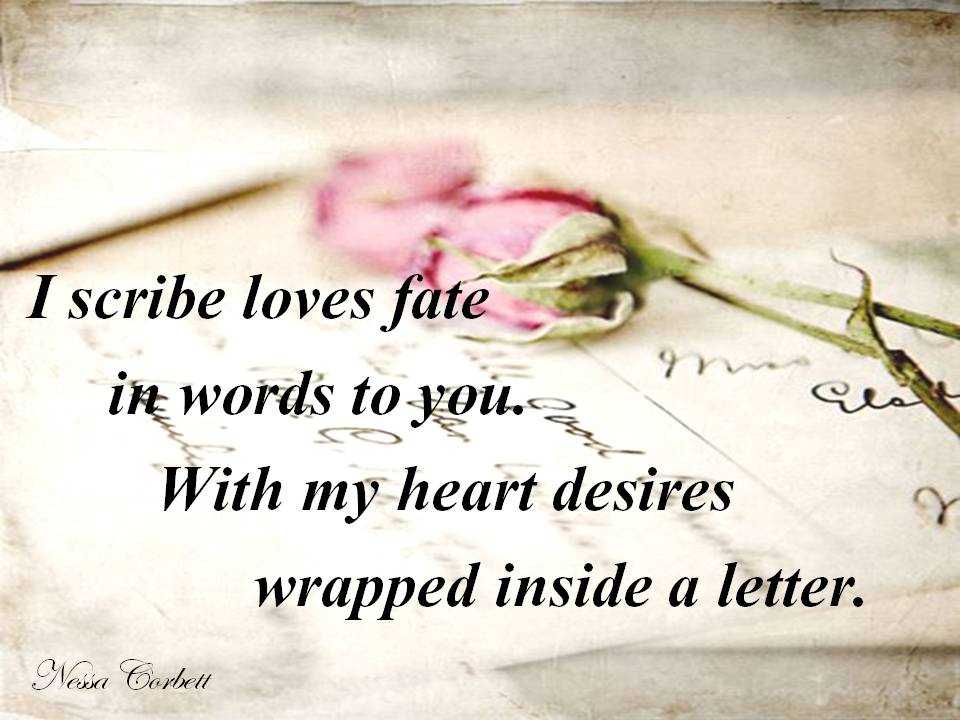 I scribe loves fate
in words to you.
With my heart desires
wrapped inside a letter.
Nessa Corbett